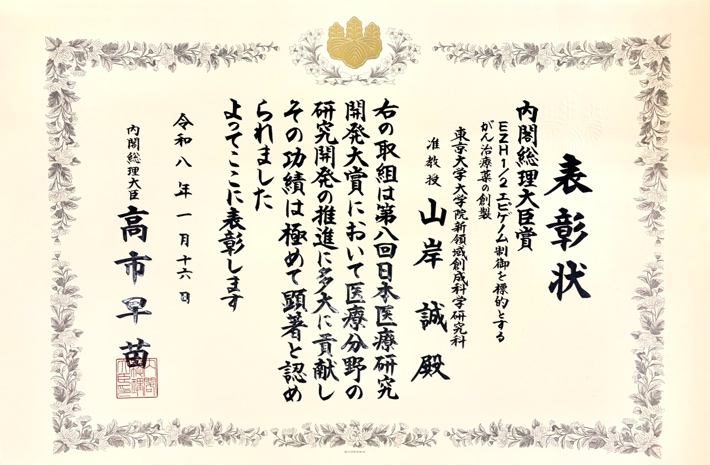 表彰状
内閣総理大臣賞
EZH1/2エピゲノム制御を標的とする
がん治療薬の創製
東京大学大学院新領域創成科学研究科
准教授 山岸 誠 殿
右の取組は第八回日本医療研究
開発大賞において医療分野の
研究開発の推進に多大に貢献し
その功績は極めて顕著と認め
られました
よってここに表彰します
令和八年一月十六日
内閣総理大臣 高市早苗